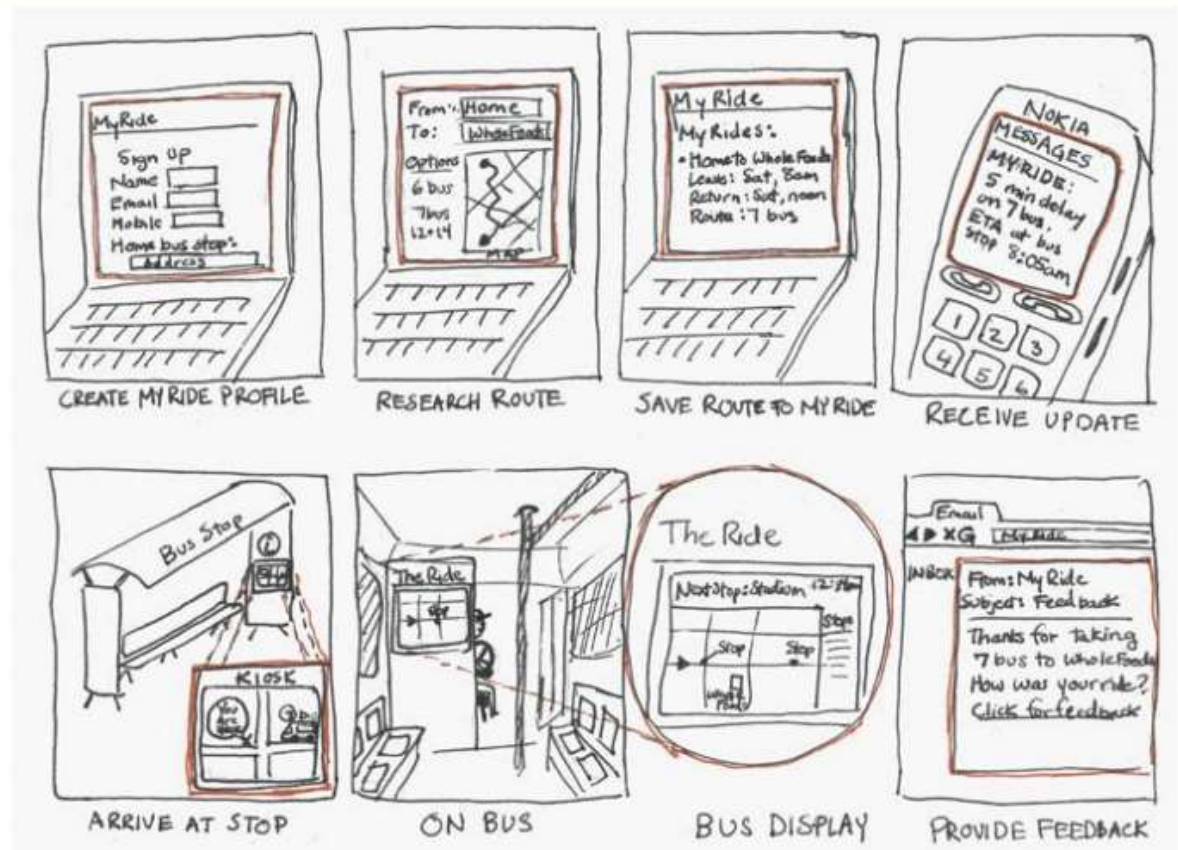 MyRide
Sign up
Name
Email
Mobile
Home bus stop:
Address
CREATE MYRIDE PROFILE
From: Home
To: Whole Foods
Options
6 bus
7 bus
12+14
MAP
RESEARCH ROUTE
My Ride
My Rides:
• Home to Whole Foods
Leave: Sat, 8am
Return: Sat, noon
Route: 7 bus
SAVE ROUTE TO MYRIDE
NOKIA
MESSAGES
MY RIDE:
5 min delay
on 7 bus.
ETA at bus
stop 8:05am
1 2 3
4 5 6
RECEIVE UPDATE
Bus Stop
i
KIOSK
You
Are
ARRIVE AT STOP
The Ride
Stop
ON BUS
The Ride
Next Stop: Stadium
Stops
Stop Stop
Whole
Foods
BUS DISPLAY
Email
X G My Ride
INBOX
From: My Ride
Subject: Feedback
Thanks for taking
7 bus to Whole Foods
How was your ride?
Click for feedback
PROVIDE FEEDBACK